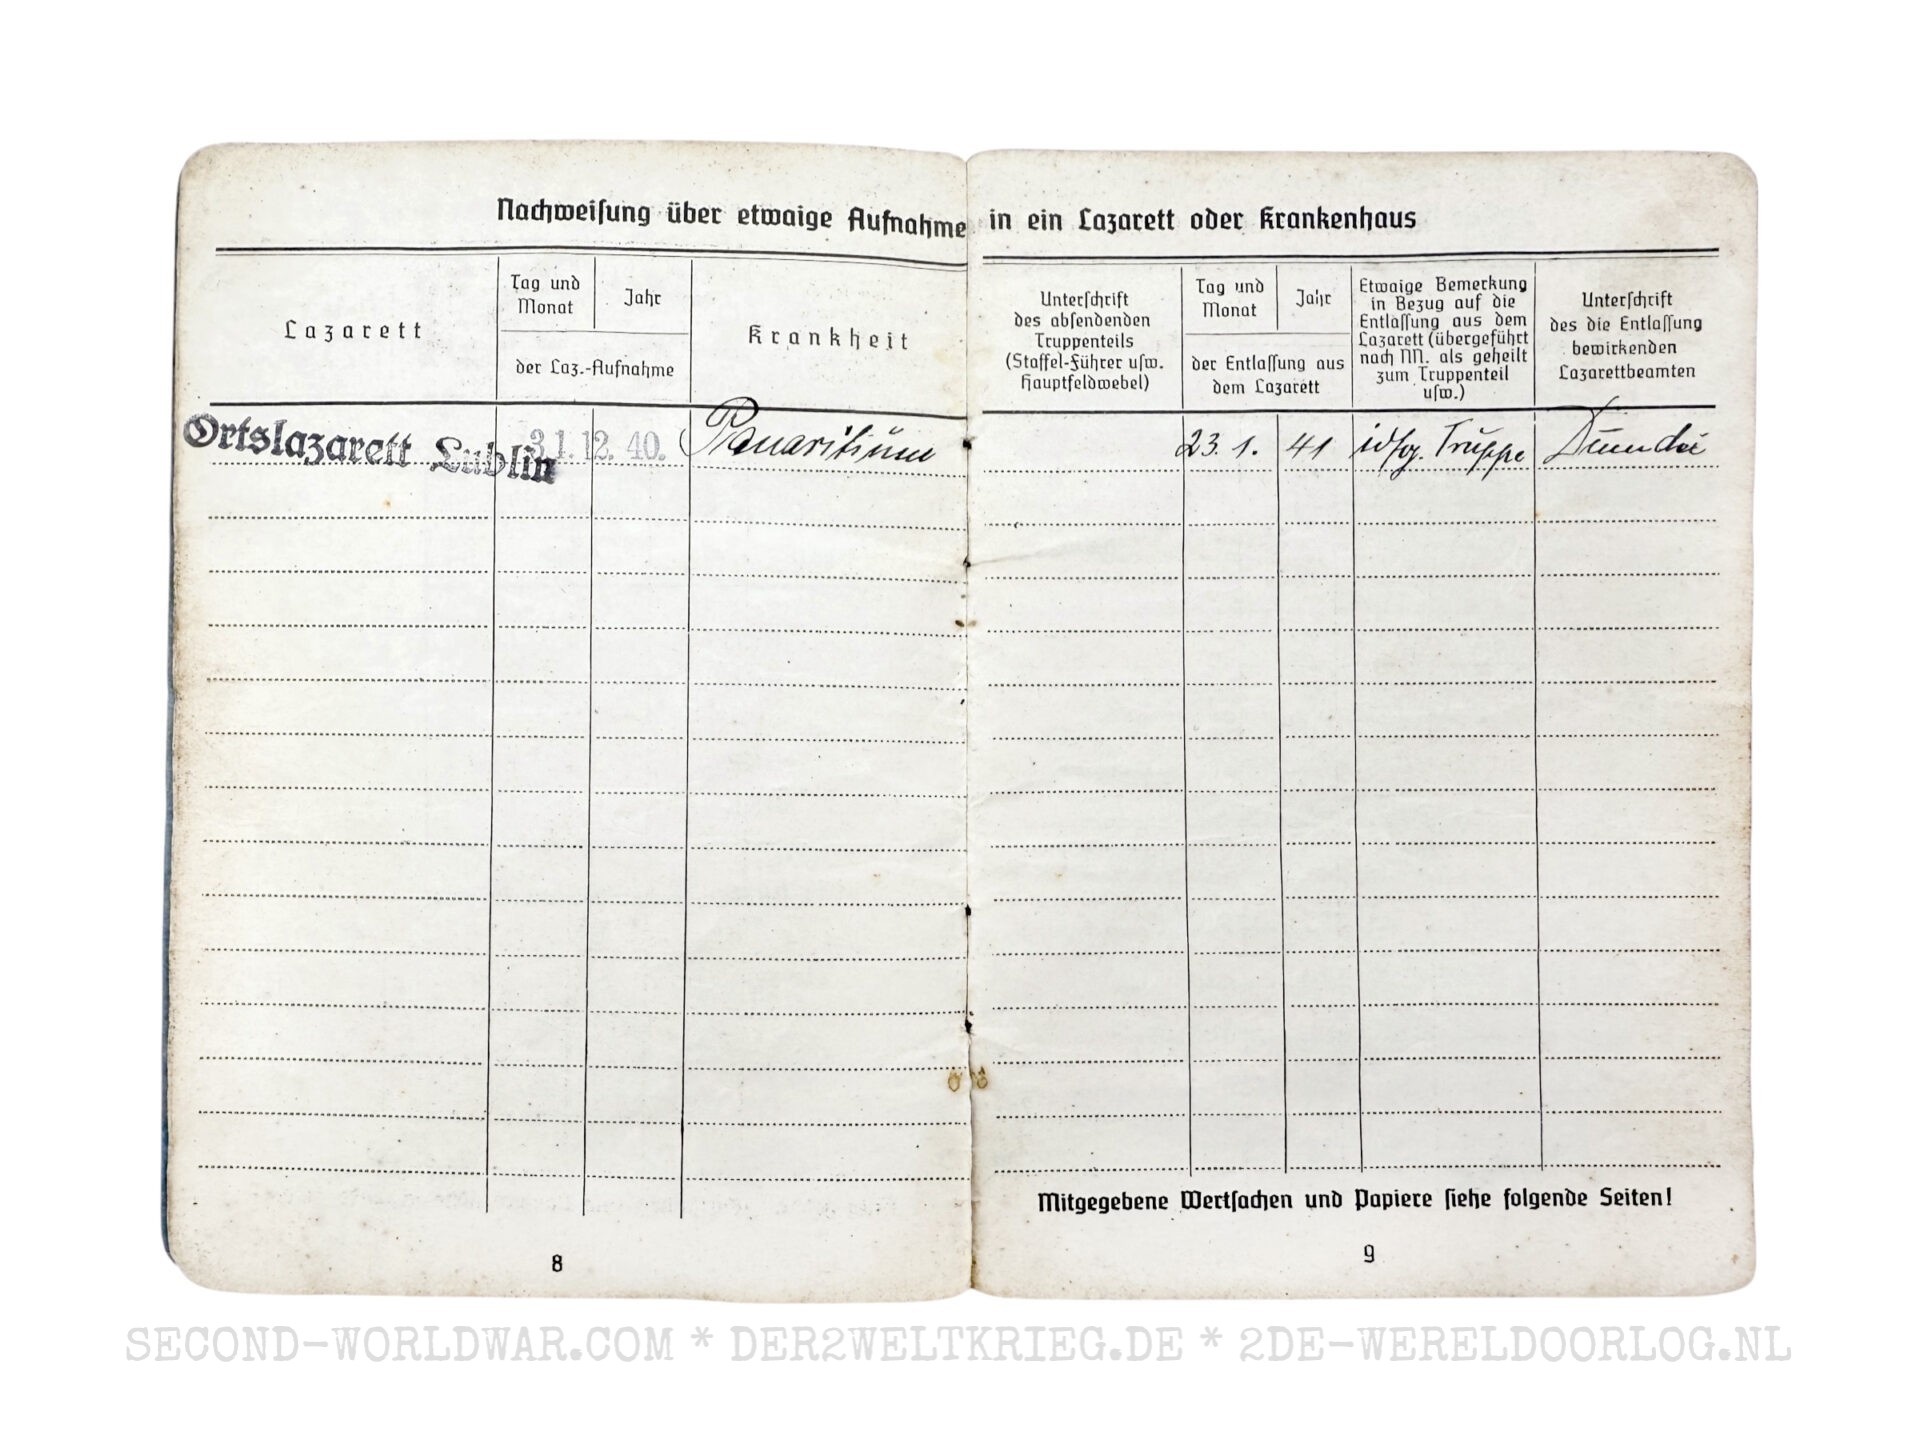 Nachweisung über etwaige Aufnahme in ein Lazarett oder Krankenhaus
Lazarett
Tag und
Monat
Jahr
der Laz.-Aufnahme
Krankheit
Unterschrift
des absendenden
Truppenteils
(Staffel-Führer usw.
Hauptfeldwebel)
Tag und
Monat
Jahr
der Entlassung aus
dem Lazarett
Etwaige Bemerkung
in Bezug auf die
Entlassung aus dem
Lazarett (übergeführt
nach NN. als geheilt
zum Truppenteil
usw.)
Unterschrift
des die Entlassung
bewirkenden
Lazarettbeamten
Ortslazarett Lublin 31. 12. 40. Panaritium 23. 1. 41 Truppe
Mitgegebene Wertsachen und Papiere siehe folgende Seiten!
8
9
SECOND-WORLDWAR.COM * DER2WELTKRIEG.DE * 2DE-WERELDOORLOG.NL